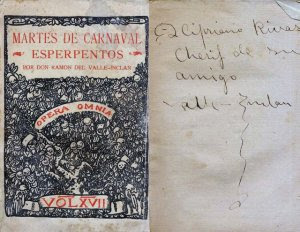 MARTES DE CARNAVAL
ESPERPENTOS
POR DON RAMON DEL VALLE-INCLAN
OPERA OMNIA
VOL XVII
A Cipriano Rivas
Cherif de su
amigo
Valle-Inclan